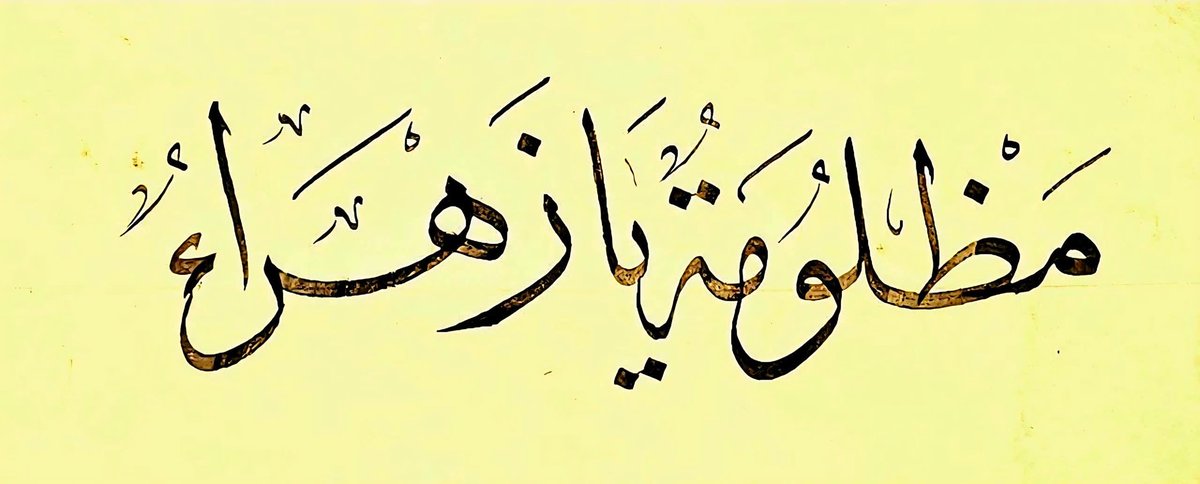 مَظْلُومَةُ يَا زَهْرَاءُ